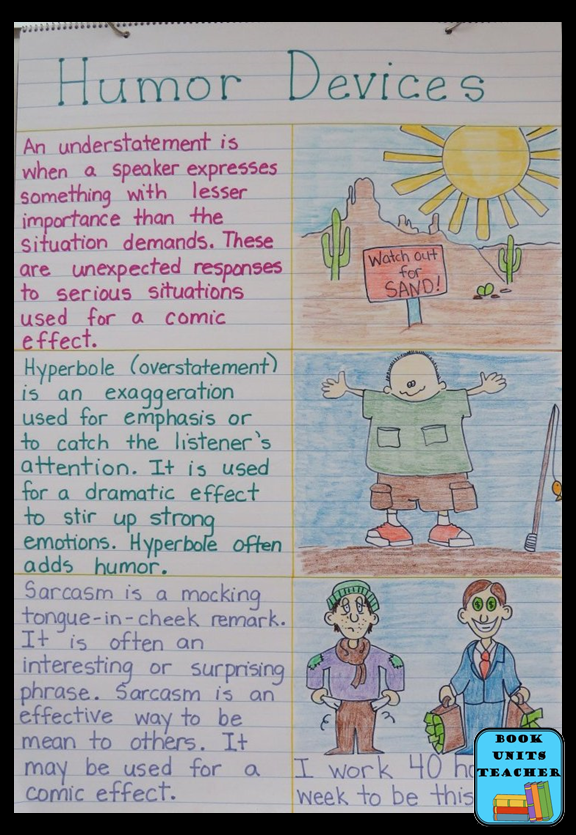 Humor Devices
An understatement is
when a speaker expresses
something with lesser
importance than the
situation demands. These
are unexpected responses
to serious situations
used for a comic
effect.
Watch out
for
SAND!
Hyperbole (overstatement)
is an exaggeration
used for emphasis or
to catch the listener's
attention. It is used
for a dramatic effect
to stir up strong
emotions. Hyperbole often
adds humor.
Sarcasm is a mocking
tongue-in-cheek remark.
It is often an
interesting or surprising
phrase. Sarcasm is an
effective way to be
mean to others. It
may be used for a
comic effect.
I work 40
week to be this
BOOK
UNITS
TEACHER